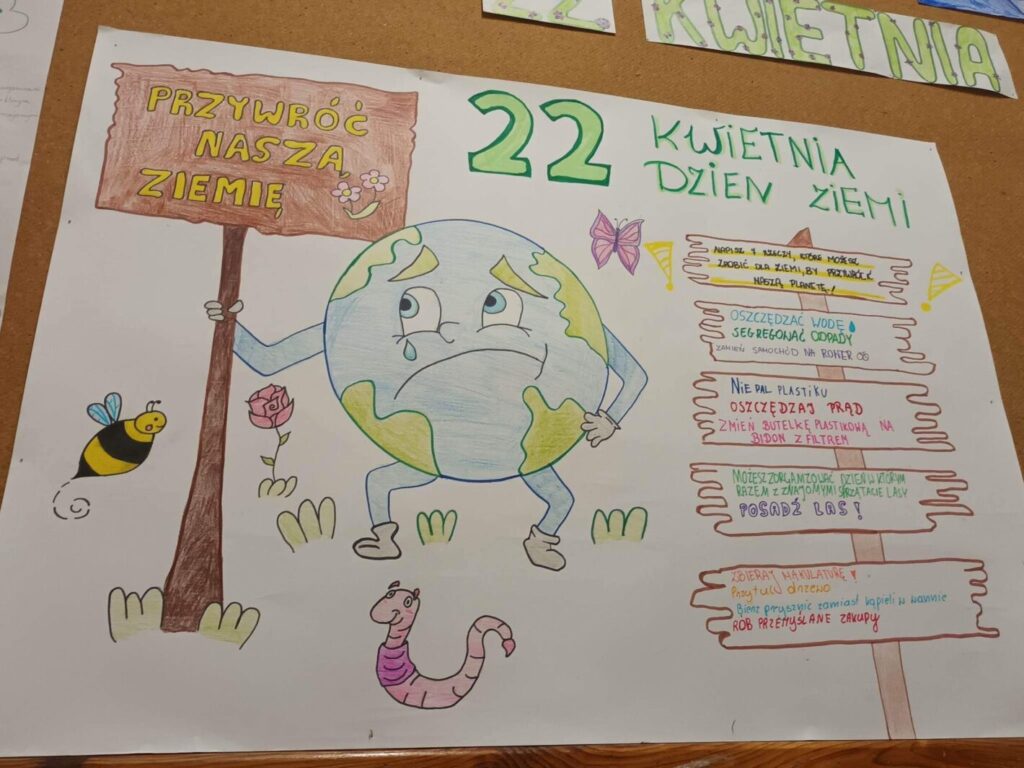 22
KWIETNIA
PRZYWRÓĆ
NASZĄ
ZIEMIĘ
22 KWIETNIA
DZIEN ZIEMI
NAPISZ 1 RZECZY, KTÓRE MOŻESZ
ZROBIĆ DLA ZIEMI, BY PRZYWRÓCIĆ
NASZĄ PLANETĘ!
OSZCZĘDZAĆ WODĘ
SEGREGOWAĆ ODPADY
ZAMIEŃ SAMOCHÓD NA ROWER
NIE PAL PLASTIKU
OSZCZĘDZAJ PRĄD
ZMIEŃ BUTELKĘ PLASTIKOWĄ NA
BIDON Z FILTREM
MOŻESZ ZORGANIZOWAĆ DZIEŃ W KTÓRYM
RAZEM Z ZNAJOMYMI SPRZĄTACIE LASY
POSADŹ LAS!
ZBIERAJ MAKULATURĘ
Przytul drzewo
Bierz prysznic zamiast kąpieli w wannie
ROB PRZEMYŚLANE ZAKUPY